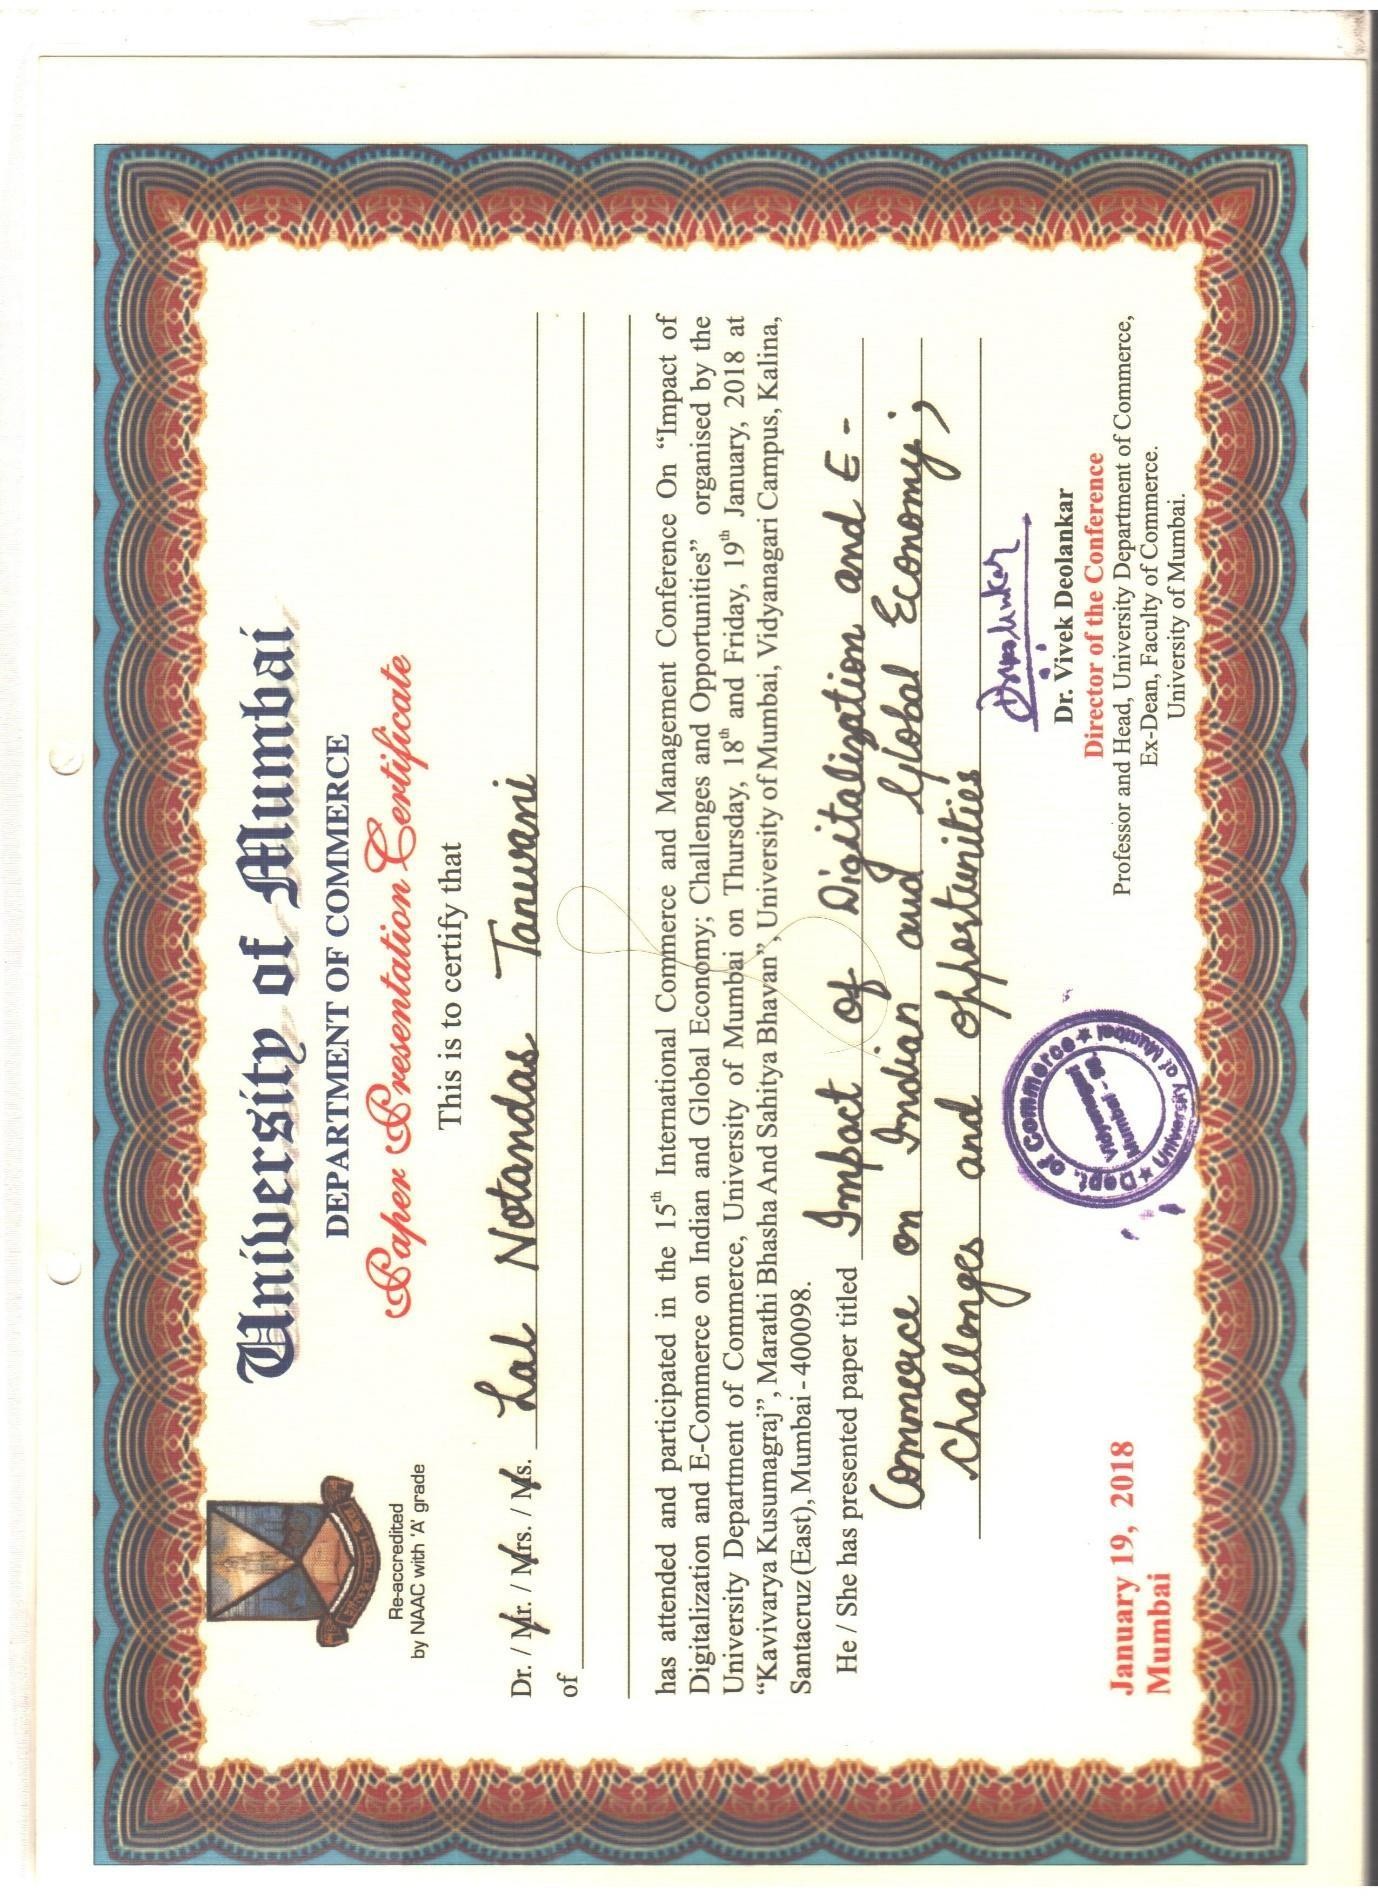 University of Mumbai
DEPARTMENT OF COMMERCE
Paper Presentation Certificate
Re-accredited
by NAAC with 'A' grade
This is to certify that
Dr. / Mr. / Mrs. / Ms. Lal Notandas Tanwani
of
has attended and participated in the 15th International Commerce and Management Conference On “Impact of
Digitalization and E-Commerce on Indian and Global Economy; Challenges and Opportunities” organised by the
University Department of Commerce, University of Mumbai on Thursday, 18th and Friday, 19th January, 2018 at
“Kavivarya Kusumagraj”, Marathi Bhasha And Sahitya Bhavan”, University of Mumbai, Vidyanagari Campus, Kalina,
Santacruz (East), Mumbai - 400098.
He / She has presented paper titled Impact of Digitalization and E-
Commerce on Indian and Global Economy;
Challenges and opportunities
Dr. Vivek Deolankar
Director of the Conference
Professor and Head, University Department of Commerce,
Ex-Dean, Faculty of Commerce.
University of Mumbai.
January 19, 2018
Mumbai
Dept. of Commerce
University of Mumbai
Vidyanagari
Mumbai - 98